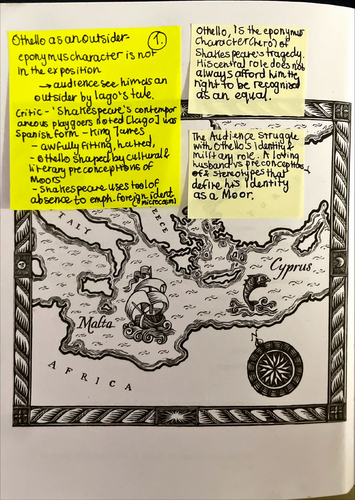 Othello as an outsider-
1.
eponymus character is not
in the exposition
→ audience see him as an
outsider by Iago's rule.
Critic - 'Shakespeare's contempor
aneous playgoers noted (Iago) was
Spanish form - King James
- awfully fitting, hatred,
- Othello shaped by cultural &
literary preconceptions of
Moors'
- Shakespeare uses tool of
absence to emph. foreign ident.
(microcosm)
Othello, is the eponymus
character (hero) of
Shakespeare's tragedy.
His central role does not
always afford him the
right to be recognised
as an equal.
The Audience struggle
with Othello's identity &
military role. A loving
husband vs preconceptions
of stereotypes that
define his identity
as a Moor.
ITALY
Cyprus
Malta
N
AFRICA